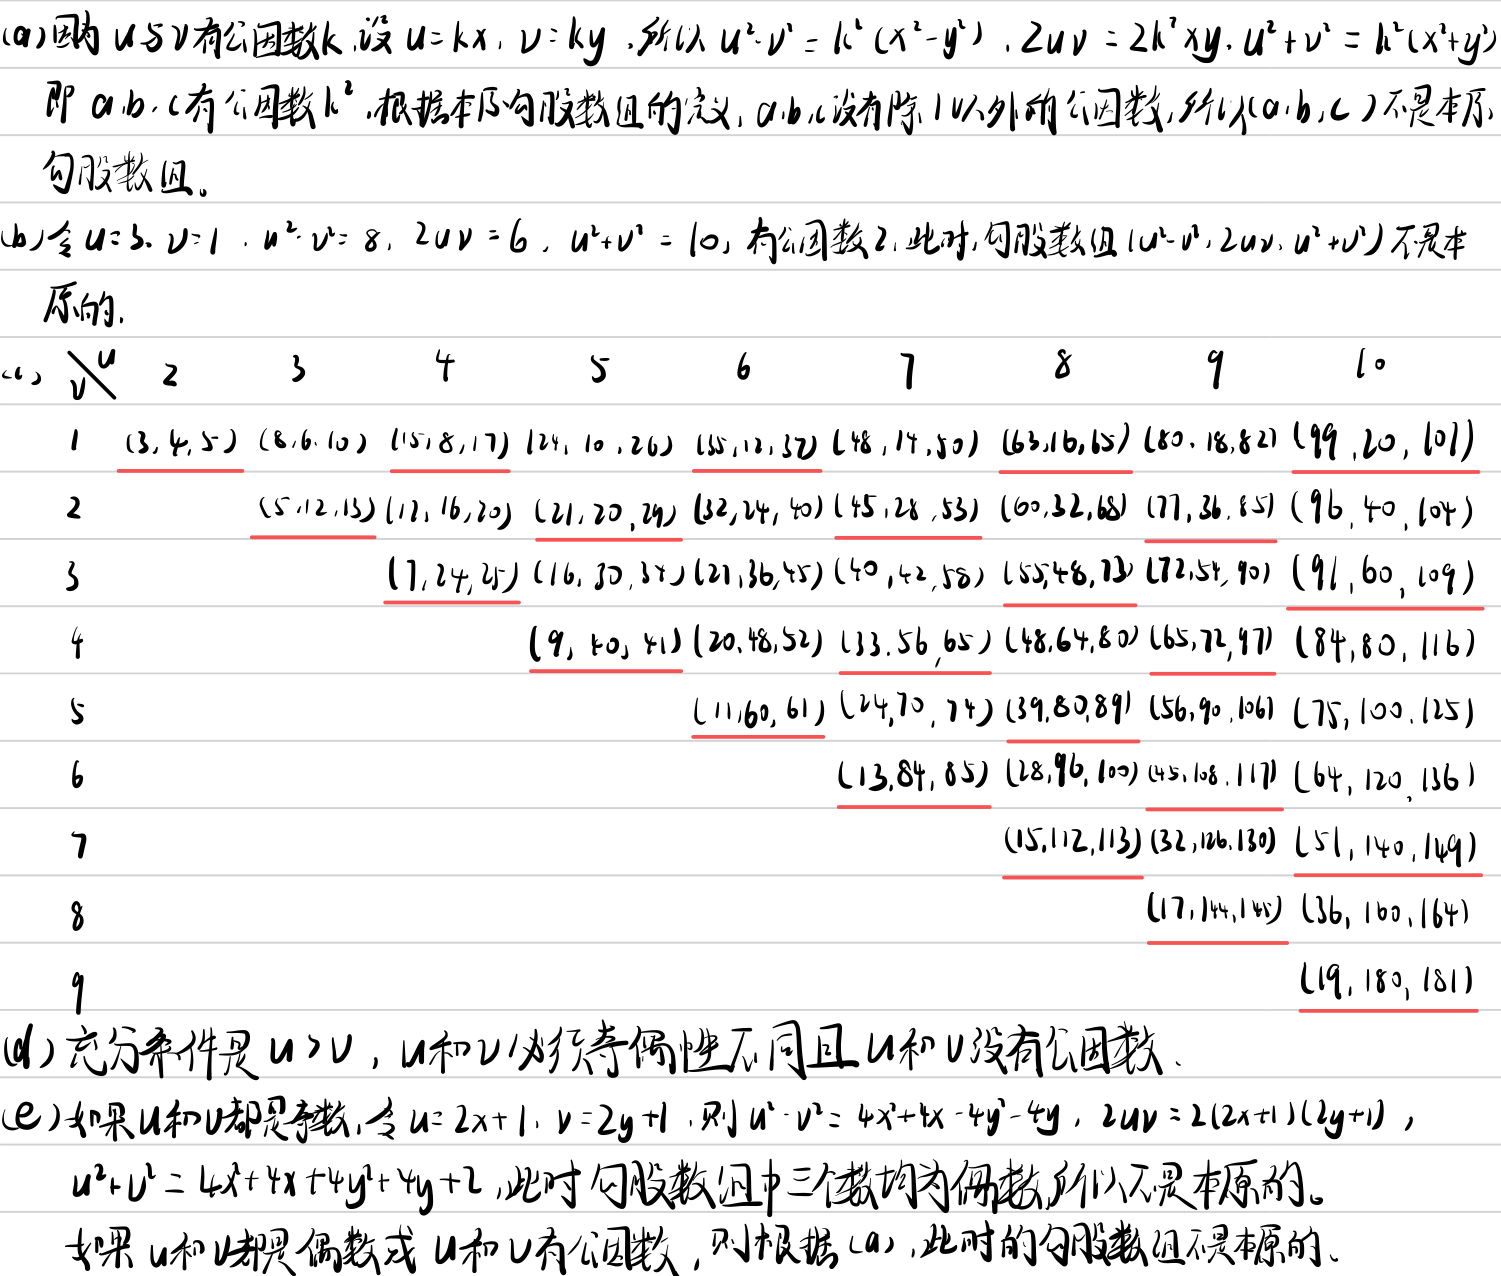 (a) 因为 u 与 v 有公因数k，设 u=kx，v=ky，所以 u²-v²=k²(x²-y²)，2uv=2k²xy，u²+v²=k²(x²+y²)
即 a,b,c有公因数k²，根据本原勾股数组的定义，a,b,c没有除1以外的公因数，所以(a,b,c)不是本原
勾股数组。
(b) 令 u=3，v=1，u²-v²=8，2uv=6，u²+v²=10，有公因数2，此时，勾股数组(u²-v²，2uv，u²+v²)不是本
原的.
(c) v\u 2 3 4 5 6 7 8 9 10
1 (3,4,5) (8,6,10) (15,8,17) (24,10,26) (35,12,37) (48,14,50) (63,16,65) (80,18,82) (99,20,101)
2 (5,12,13) (12,16,20) (21,20,29) (32,24,40) (45,28,53) (60,32,68) (77,36,85) (96,40,104)
3 (7,24,25) (16,30,34) (27,36,45) (40,42,58) (55,48,73) (72,54,90) (91,60,109)
4 (9,40,41) (20,48,52) (33,56,65) (48,64,80) (65,72,97) (84,80,116)
5 (11,60,61) (24,70,74) (39,80,89) (56,90,106) (75,100,125)
6 (13,84,85) (28,96,100) (45,108,117) (64,120,136)
7 (15,112,113) (32,126,130) (51,140,149)
8 (17,144,145) (36,160,164)
9 (19,180,181)
(d) 充分条件是 u>v，u和v必须奇偶性不同且u和v没有公因数、
(e) 如果u和v都是奇数，令 u=2x+1，v=2y+1，则 u²-v²=4x²+4x-4y²-4y，2uv=2(2x+1)(2y+1)，
u²+v²=4x²+4x+4y²+4y+2，此时勾股数组中三个数均为偶数，所以不是本原的。
如果 u和v都是偶数或 u和v有公因数，则根据(a)，此时的勾股数组不是本原的、